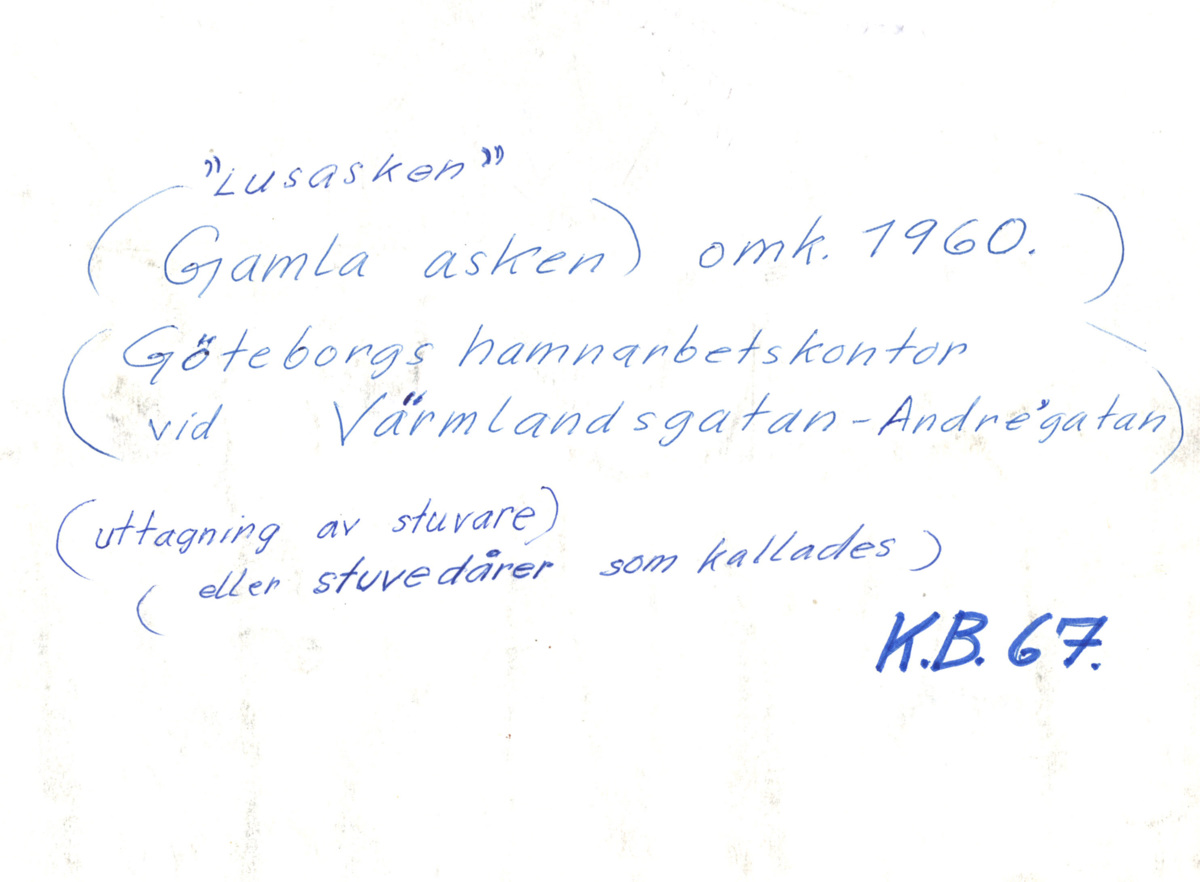 "Lusasken"
(Gamla asken) omk. 1960. )
(Göteborgs hamnarbetskontor
vid Värmlandsgatan-André'gatan)
(uttagning av stuvare)
(eller stuvedårer som kallades)
K.B. 67.